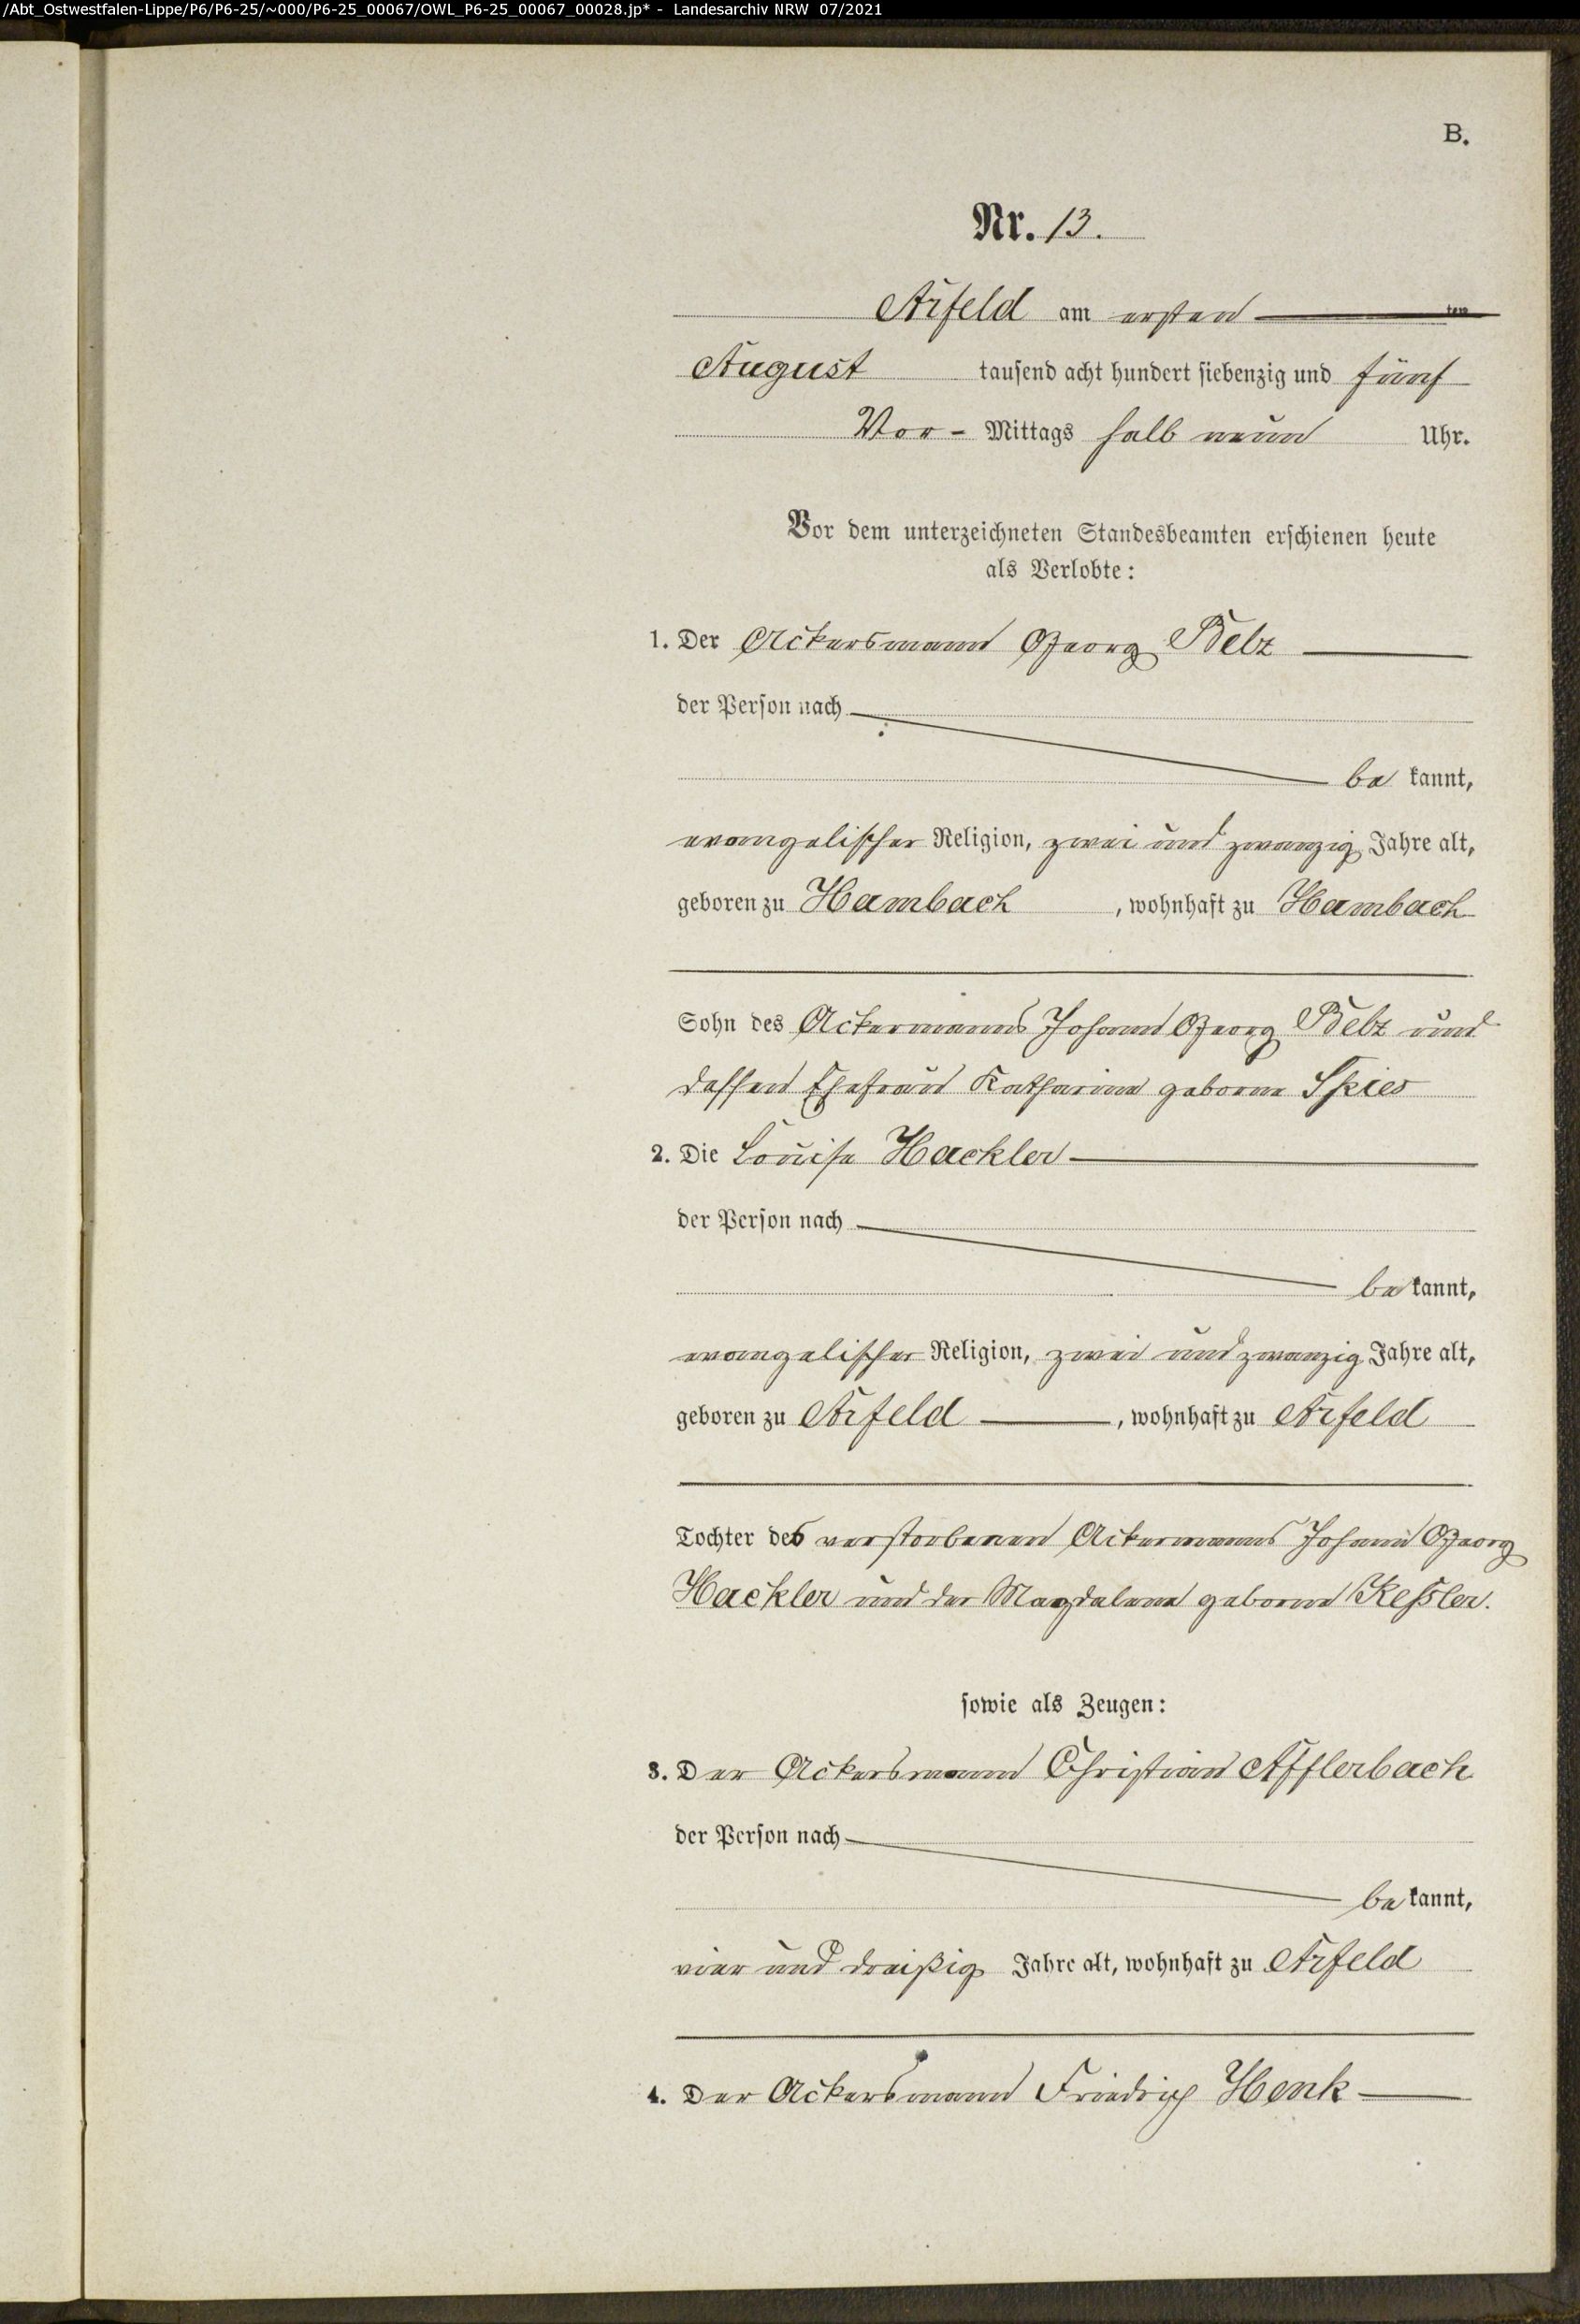 /Abt_Ostwestfalen-Lippe/P6/P6-25/~000/P6-25_00067/OWL_P6-25_00067_00028.jp* - Landesarchiv NRW 07/2021
B.
Nr. 13.
Arfeld am ersten ten
August tausend acht hundert siebenzig und fünf
Vor- Mittags halb neun Uhr.
Vor dem unterzeichneten Standesbeamten erschienen heute
als Verlobte:
1. Der Ackersmann Georg Belz
der Person nach
be kannt,
evangelischer Religion, zwei und zwanzig Jahre alt,
geboren zu Hambach , wohnhaft zu Hambach
Sohn des Ackermanns Johann Georg Belz und
dessen Ehefrau Katharina geborne Spies
2. Die Louise Hackler
der Person nach
be kannt,
evangelischer Religion, zwei und zwanzig Jahre alt,
geboren zu Arfeld , wohnhaft zu Arfeld
Tochter des verstorbenen Ackermanns Johann Georg
Hackler und der Magdalena geborne Keßler.
sowie als Zeugen:
3. Der Ackersmann Christian Afflerbach
der Person nach
be kannt,
vier und dreißig Jahre alt, wohnhaft zu Arfeld
4. Der Ackersmann Friedrich Henk